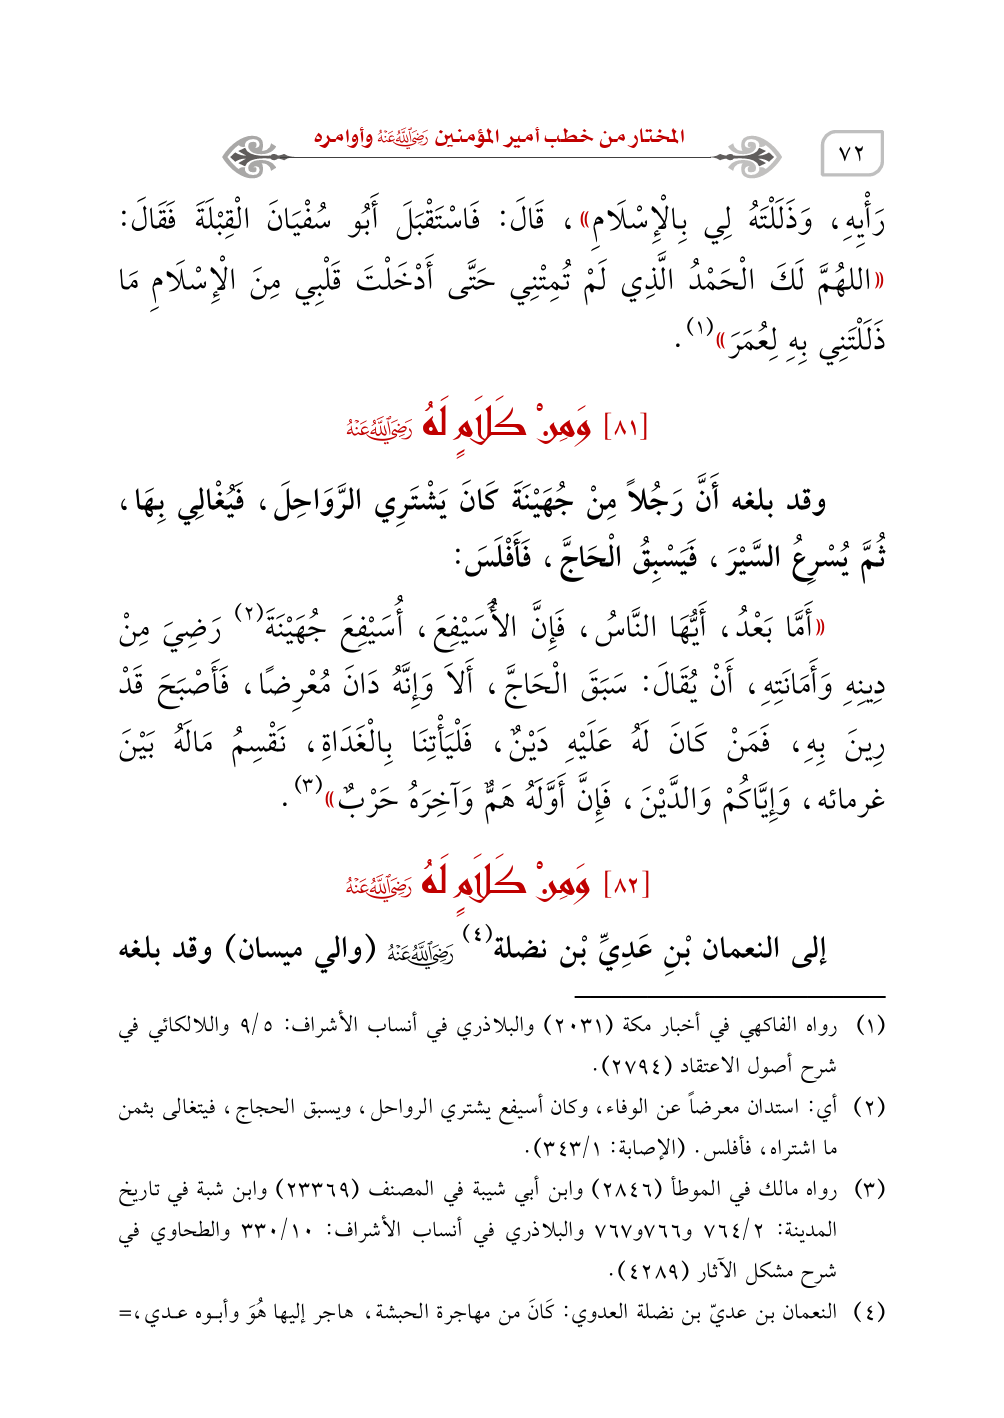 المختار من خطب أمير المؤمنين رَضِيَ اللَّهُ عَنْهُ وأوامره
٧٢
رَأْيِهِ، وَذَلَلْتَهُ لِي بِالْإِسْلَامِ»، قَالَ: فَاسْتَقْبَلَ أَبُو سُفْيَانَ الْقِبْلَةَ فَقَالَ:
«اللهُمَّ لَكَ الْحَمْدُ الَّذِي لَمْ تُمِتْنِي حَتَّى أَدْخَلْتَ قَلْبِي مِنَ الْإِسْلَامِ مَا
ذَلَلْتَنِي بِهِ لِعُمَرَ»(١).
[٨١] وَمِنْ كَلَامٍ لَهُ رَضِيَ اللَّهُ عَنْهُ
وقد بلغه أَنَّ رَجُلاً مِنْ جُهَيْنَةَ كَانَ يَشْتَرِي الرَّوَاحِلَ، فَيُغْالِي بِهَا،
ثُمَّ يُسْرِعُ السَّيْرَ، فَيَسْبِقُ الْحَاجَّ، فَأَفْلَسَ:
«أَمَّا بَعْدُ، أَيُّهَا النَّاسُ، فَإِنَّ الأُسَيْفِعَ، أُسَيْفِعَ جُهَيْنَةَ(٢) رَضِيَ مِنْ
دِينِهِ وَأَمَانَتِهِ، أَنْ يُقَالَ: سَبَقَ الْحَاجَّ، أَلاَ وَإِنَّهُ دَانَ مُعْرِضًا، فَأَصْبَحَ قَدْ
رِينَ بِهِ، فَمَنْ كَانَ لَهُ عَلَيْهِ دَيْنٌ، فَلْيَأْتِنَا بِالْغَدَاةِ، نَقْسِمُ مَالَهُ بَيْنَ
غرمائه، وَإِيَّاكُمْ وَالدَّيْنَ، فَإِنَّ أَوَّلَهُ هَمٌّ وَآخِرَهُ حَرْبٌ»(٣).
[٨٢] وَمِنْ كَلَامٍ لَهُ رَضِيَ اللَّهُ عَنْهُ
إلى النعمان بْنِ عَدِيِّ بْن نضلة(٤) رَضِيَ اللَّهُ عَنْهُ (والي ميسان) وقد بلغه
(١) رواه الفاكهي في أخبار مكة (٢٠٣١) والبلاذري في أنساب الأشراف: ٩/٥ واللالكائي في
شرح أصول الاعتقاد (٢٧٩٤).
(٢) أي: استدان معرضاً عن الوفاء، وكان أسيفع يشتري الرواحل، ويسبق الحجاج، فيتغالى بثمن
ما اشتراه، فأفلس. (الإصابة: ٣٤٣/١).
(٣) رواه مالك في الموطأ (٢٨٤٦) وابن أبي شيبة في المصنف (٢٣٣٦٩) وابن شبة في تاريخ
المدينة: ٧٦٤/٢ و٧٦٦و٧٦٧ والبلاذري في أنساب الأشراف: ٣٣٠/١٠ والطحاوي في
شرح مشكل الآثار (٤٢٨٩).
(٤) النعمان بن عديّ بن نضلة العدوي: كَانَ من مهاجرة الحبشة، هاجر إليها هُوَ وأبوه عدي،=